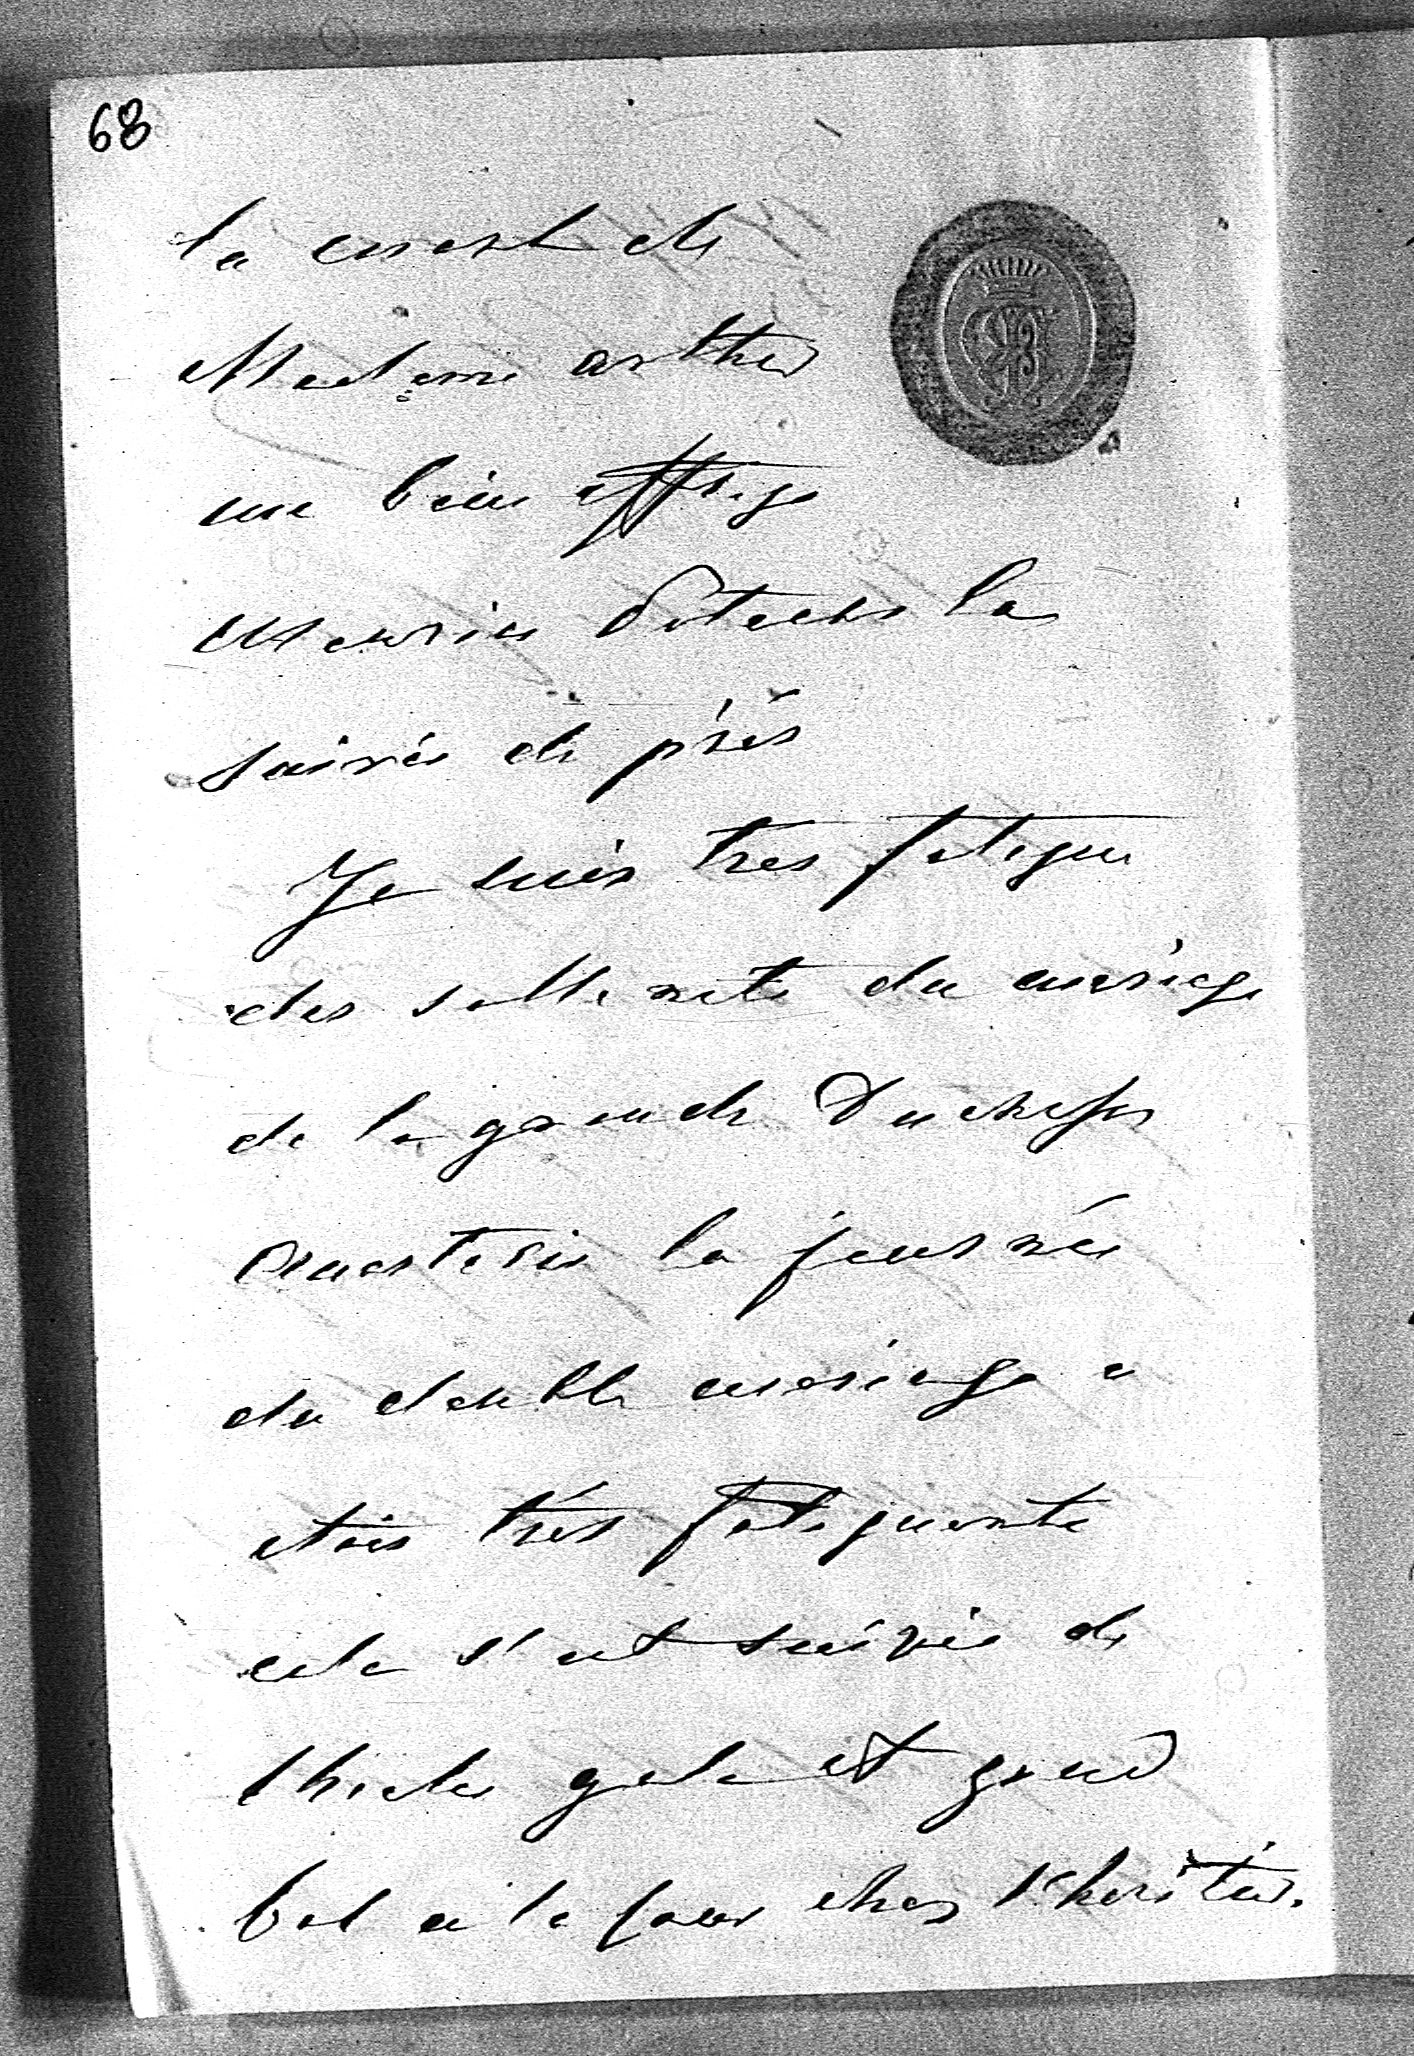 68
la mort de
Madame arthur
me bien afflige
Maurin Potocki la
suivie de près
Je suis tres fatigue
des sollenité du mariage
de la grande Duchesse
Anastasie la journée
du double mariage a
etais très fatiguante
cela s'est suivie de
gala et grand
bal a la cour chez l'héritier.